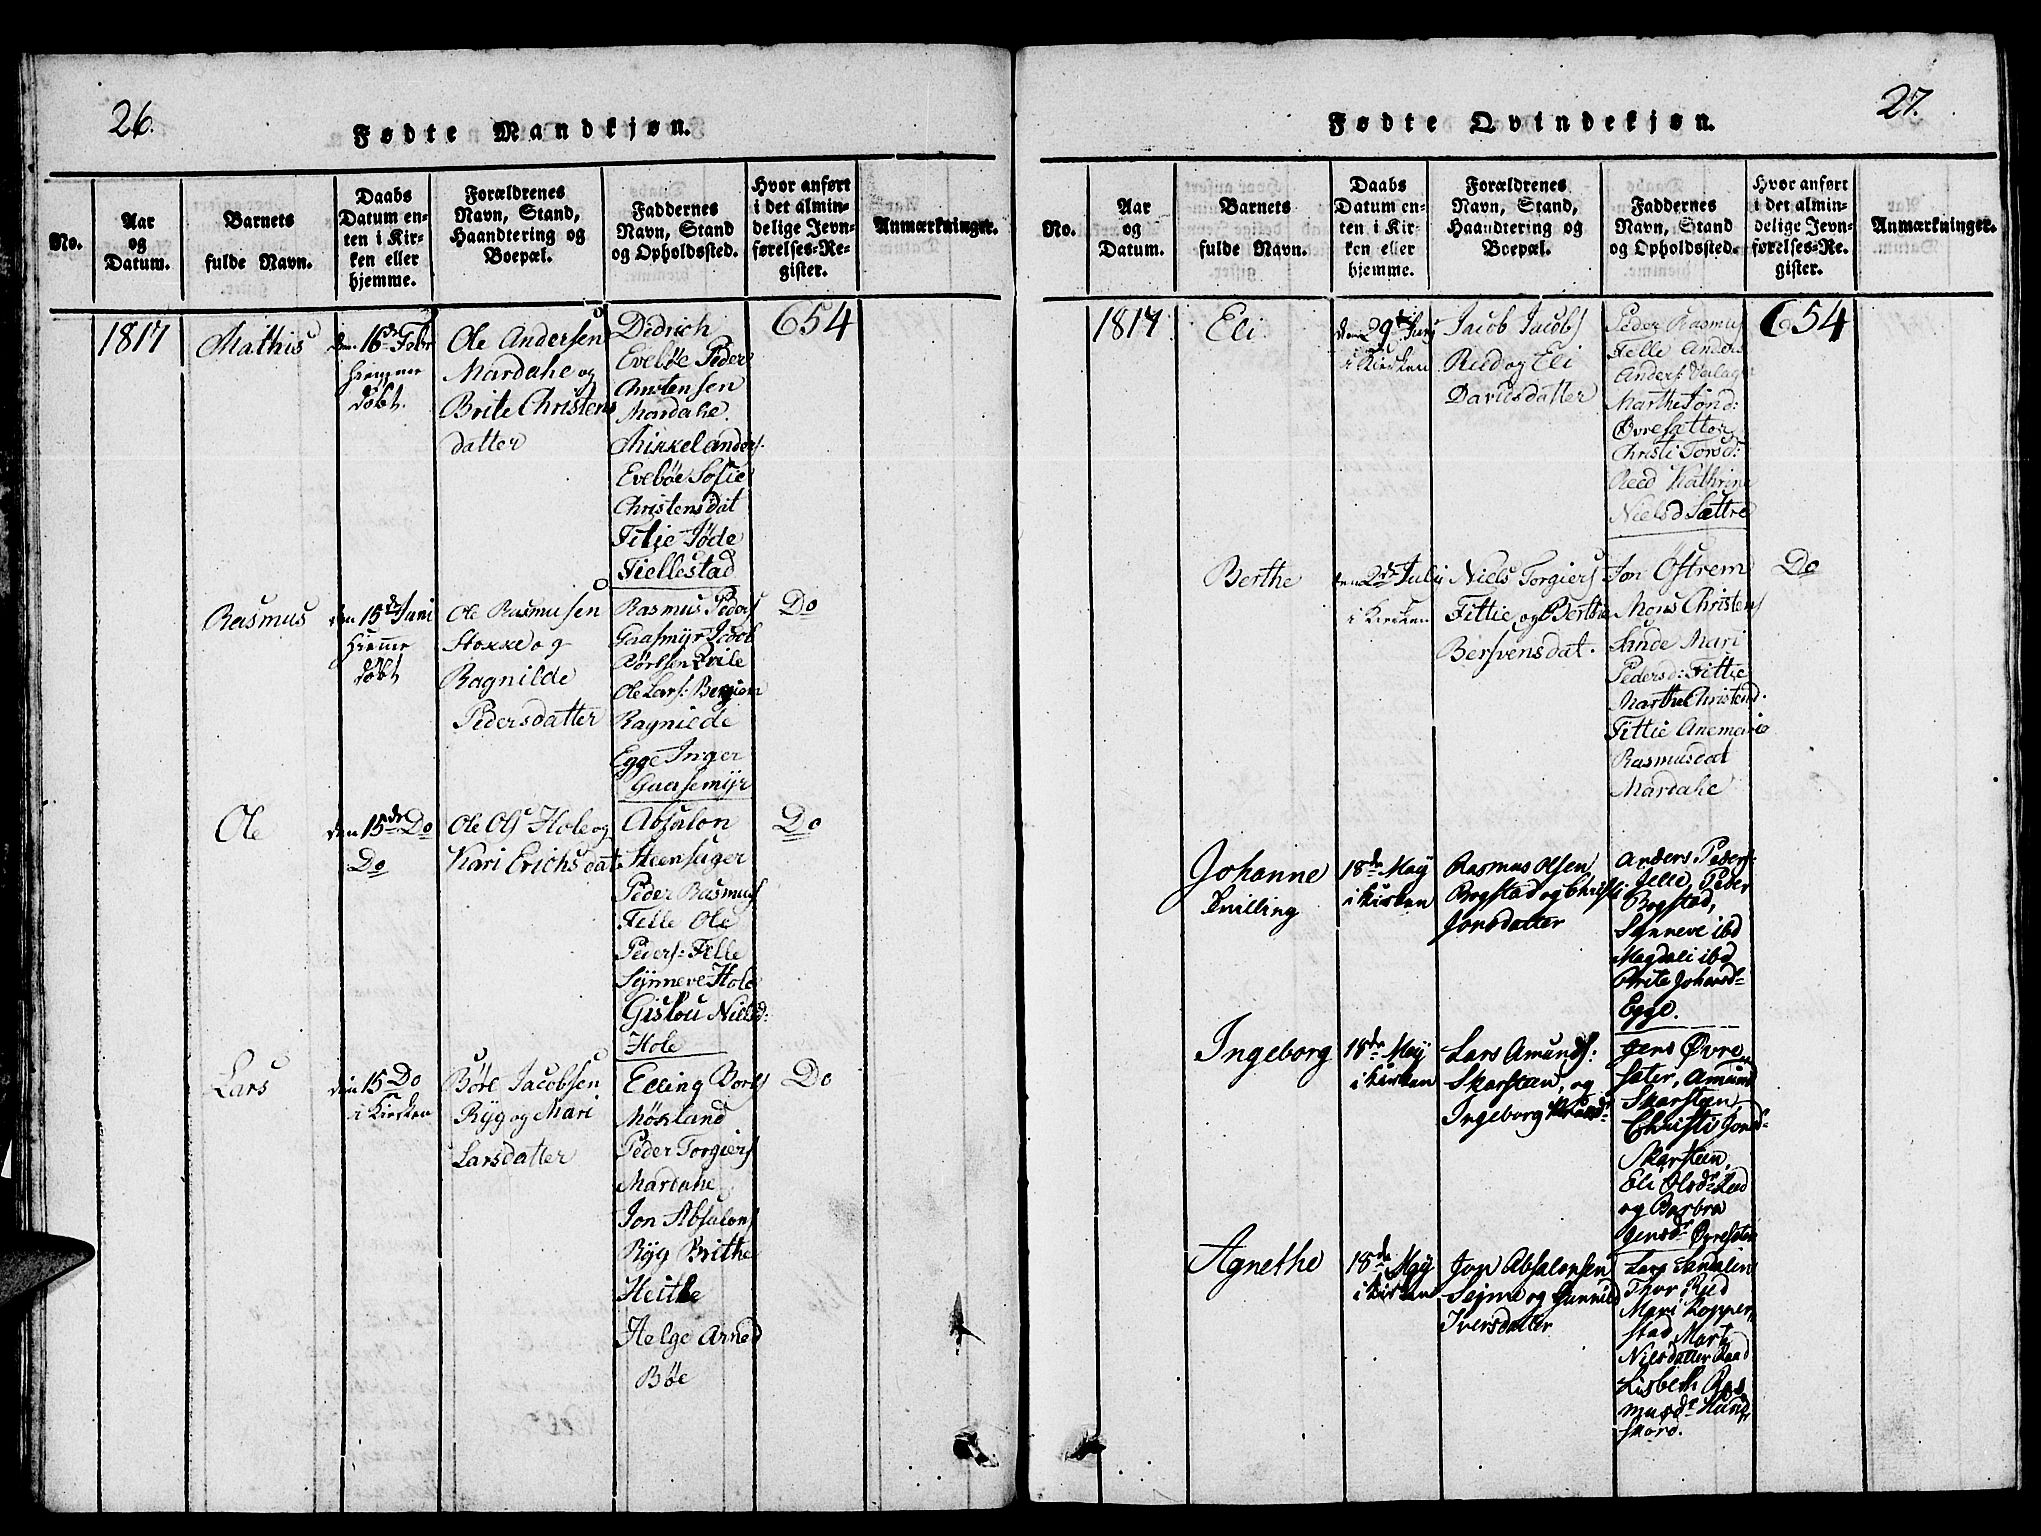 26.
Fødte Mandkjøn.
No.
Aar
og
Datum.
Barnets
fulde Navn.
Daabs
Datum en-
ten i Kir-
ken eller
hjemme.
Forældrenes
Navn, Stand,
Haandtering og
Boepæl.
Faddernes
Navn, Stand
og Opholdssted.
Hvor anført
i det almin-
delige Jevn-
førelses-Re-
gister.
Anmærkninger.
1817
Mathis
den 16de Febr
hiemme
døbt.
Ole Andersen
Mardahe og
Brite Christens
datter
Didrich
Evebøe Peder
Christensen
Mardahe
Mikkel Anders:
Evebøe Sofie
Christensdat
Fitje Jøde
Fiellestad
654
Rasmus
den 15de Juni
hiemme
døbt
Ole Rasmusen
Stokke og
Ragnilde
Pedersdatter
Rasmus Peders
Gaasmyr Jacob
Ole Lars:
Ragnilde
Egge Inger
Gaasemyr
Do
Ole
den 15de Do
Do
Ole Ols Hole og
Kari Erichsdat
Absalon
Steensager
Peder Rasmus
Felle Ole
Peders: Felle
Synneve Hole
Giskou Nielsd:
Hole
Do
Lars
den 15 Do
i Kircken
Børe Jacobsen
Ryg og Mari
Larsdatter
Elling Bores
Møkland
Peder Torgiers
Mardahe
Jon Absalons
Ryg Brithe
Heitle
Helge Arned
Bøe
Do
27.
Fødte Qvindekjøn.
No.
Aar
og
Datum.
Barnets
fulde Navn.
Daabs
Datum en-
ten i Kir-
ken eller
hjemme.
Forældrenes
Navn, Stand,
Haandtering og
Boepæl.
Faddernes
Navn, Stand
og Opholdssted.
Hvor anført
i det almin-
delige Jevn-
førelses-Re-
gister.
Anmærkninger.
1817
Eli
den 29
i Kircken
Jacob Jacobs
Rud og Eli
Davidsdatter
Peder Rasmus
Felle Anders
Anders:
Marthe Jond:
Øvresætter
Christi Torsd:
Reed Kathrine
Nielsd Sættre
654
Berthe
den 2de Juli
i Kircken
Niels Torgiers
Fittie og Berthe
Bersvensdat.
Jon Østrem
Mons Christens
Sande Mari
Pedersd: Fittie
Marthe Christend:
Fittie Anemarie
Rasmusdat
Mardahe
Do
Johanne
Tvilling
18de May
i Kirken
Rasmus Olsen
Bogstad og Christi
Jonsdatter
Anders Peders:
Felle, Peder
Bogstad,
Synneve ibd
Magdali ibd
Brite Johansd:
Egge.
Ingeborg
18de May
i Kirken
Lars Amunds:
Skarsteen, og
Ingeborg
Jens Øvre
sæter, Amund
Skarsteen,
Christi Jonsd:
Skarsteen,
Eli Olsdr
og Barbra
Jensdr Øvresæter
Agnethe
18de May
i Kirken
Jon Absalonsen
Sejme og Gunnild
Iversdatter
Lars Sandalin
Thor Rud
Mari Lopper
stad, Marte
Nilsdatter Raad
Lisbeth Ras
musdr Hund
skord.